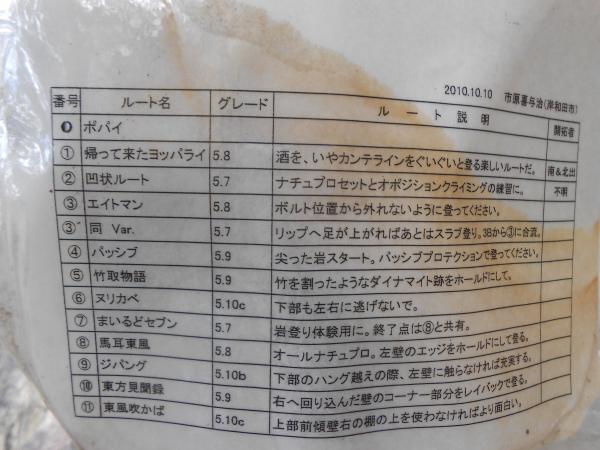 2010.10.10 市原喜与治(岸和田市)
番号 ルート名 グレード ルート説明 開拓者
ポパイ
① 帰って来たヨッパライ 5.8 酒を、いやカンテラインをぐいぐいと登る楽しいルートだ。 南&北出
② 凹状ルート 5.7 ナチュプロセットとオポジションクライミングの練習に。 不明
③ エイトマン 5.8 ボルト位置から外れないように登ってください。
③' 同 Var. 5.7 リップへ足が上がればあとはスラブ登り。3Bから③に合流。
④ パッシブ 5.9 尖った岩スタート。パッシブプロテクションで登ってください。
⑤ 竹取物語 5.9 竹を割ったようなダイナマイト跡をホールドにして。
⑥ ヌリカベ 5.10c 下部も左右に逃げないで。
⑦ まいるどセブン 5.7 岩登り体験用に。終了点は⑧と共有。
⑧ 馬耳東風 5.8 オールナチュプロ。左壁のエッジをホールドにして登る。
⑨ ジパング 5.10b 下部のハング越えの際、左壁に触らなければ充実する。
⑩ 東方見聞録 5.9 右へ回り込んだ壁のコーナー部分をレイバックで登る。
⑪ 東風吹かば 5.10c 上部前傾壁右の棚の上を使わなければより面白い。